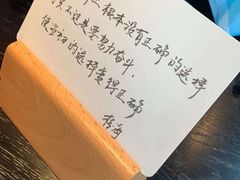 上根本没有正确的选择
只不过是要努力奋斗,
使当初的选择变得正确